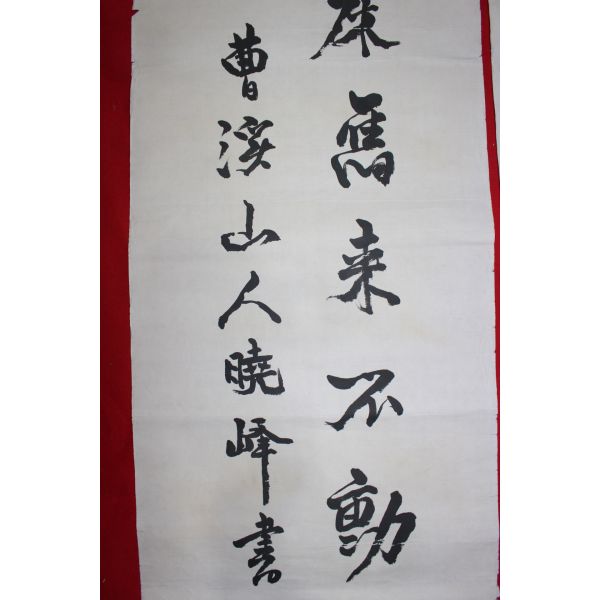 床舊来不動
曹溪山人曉峰書